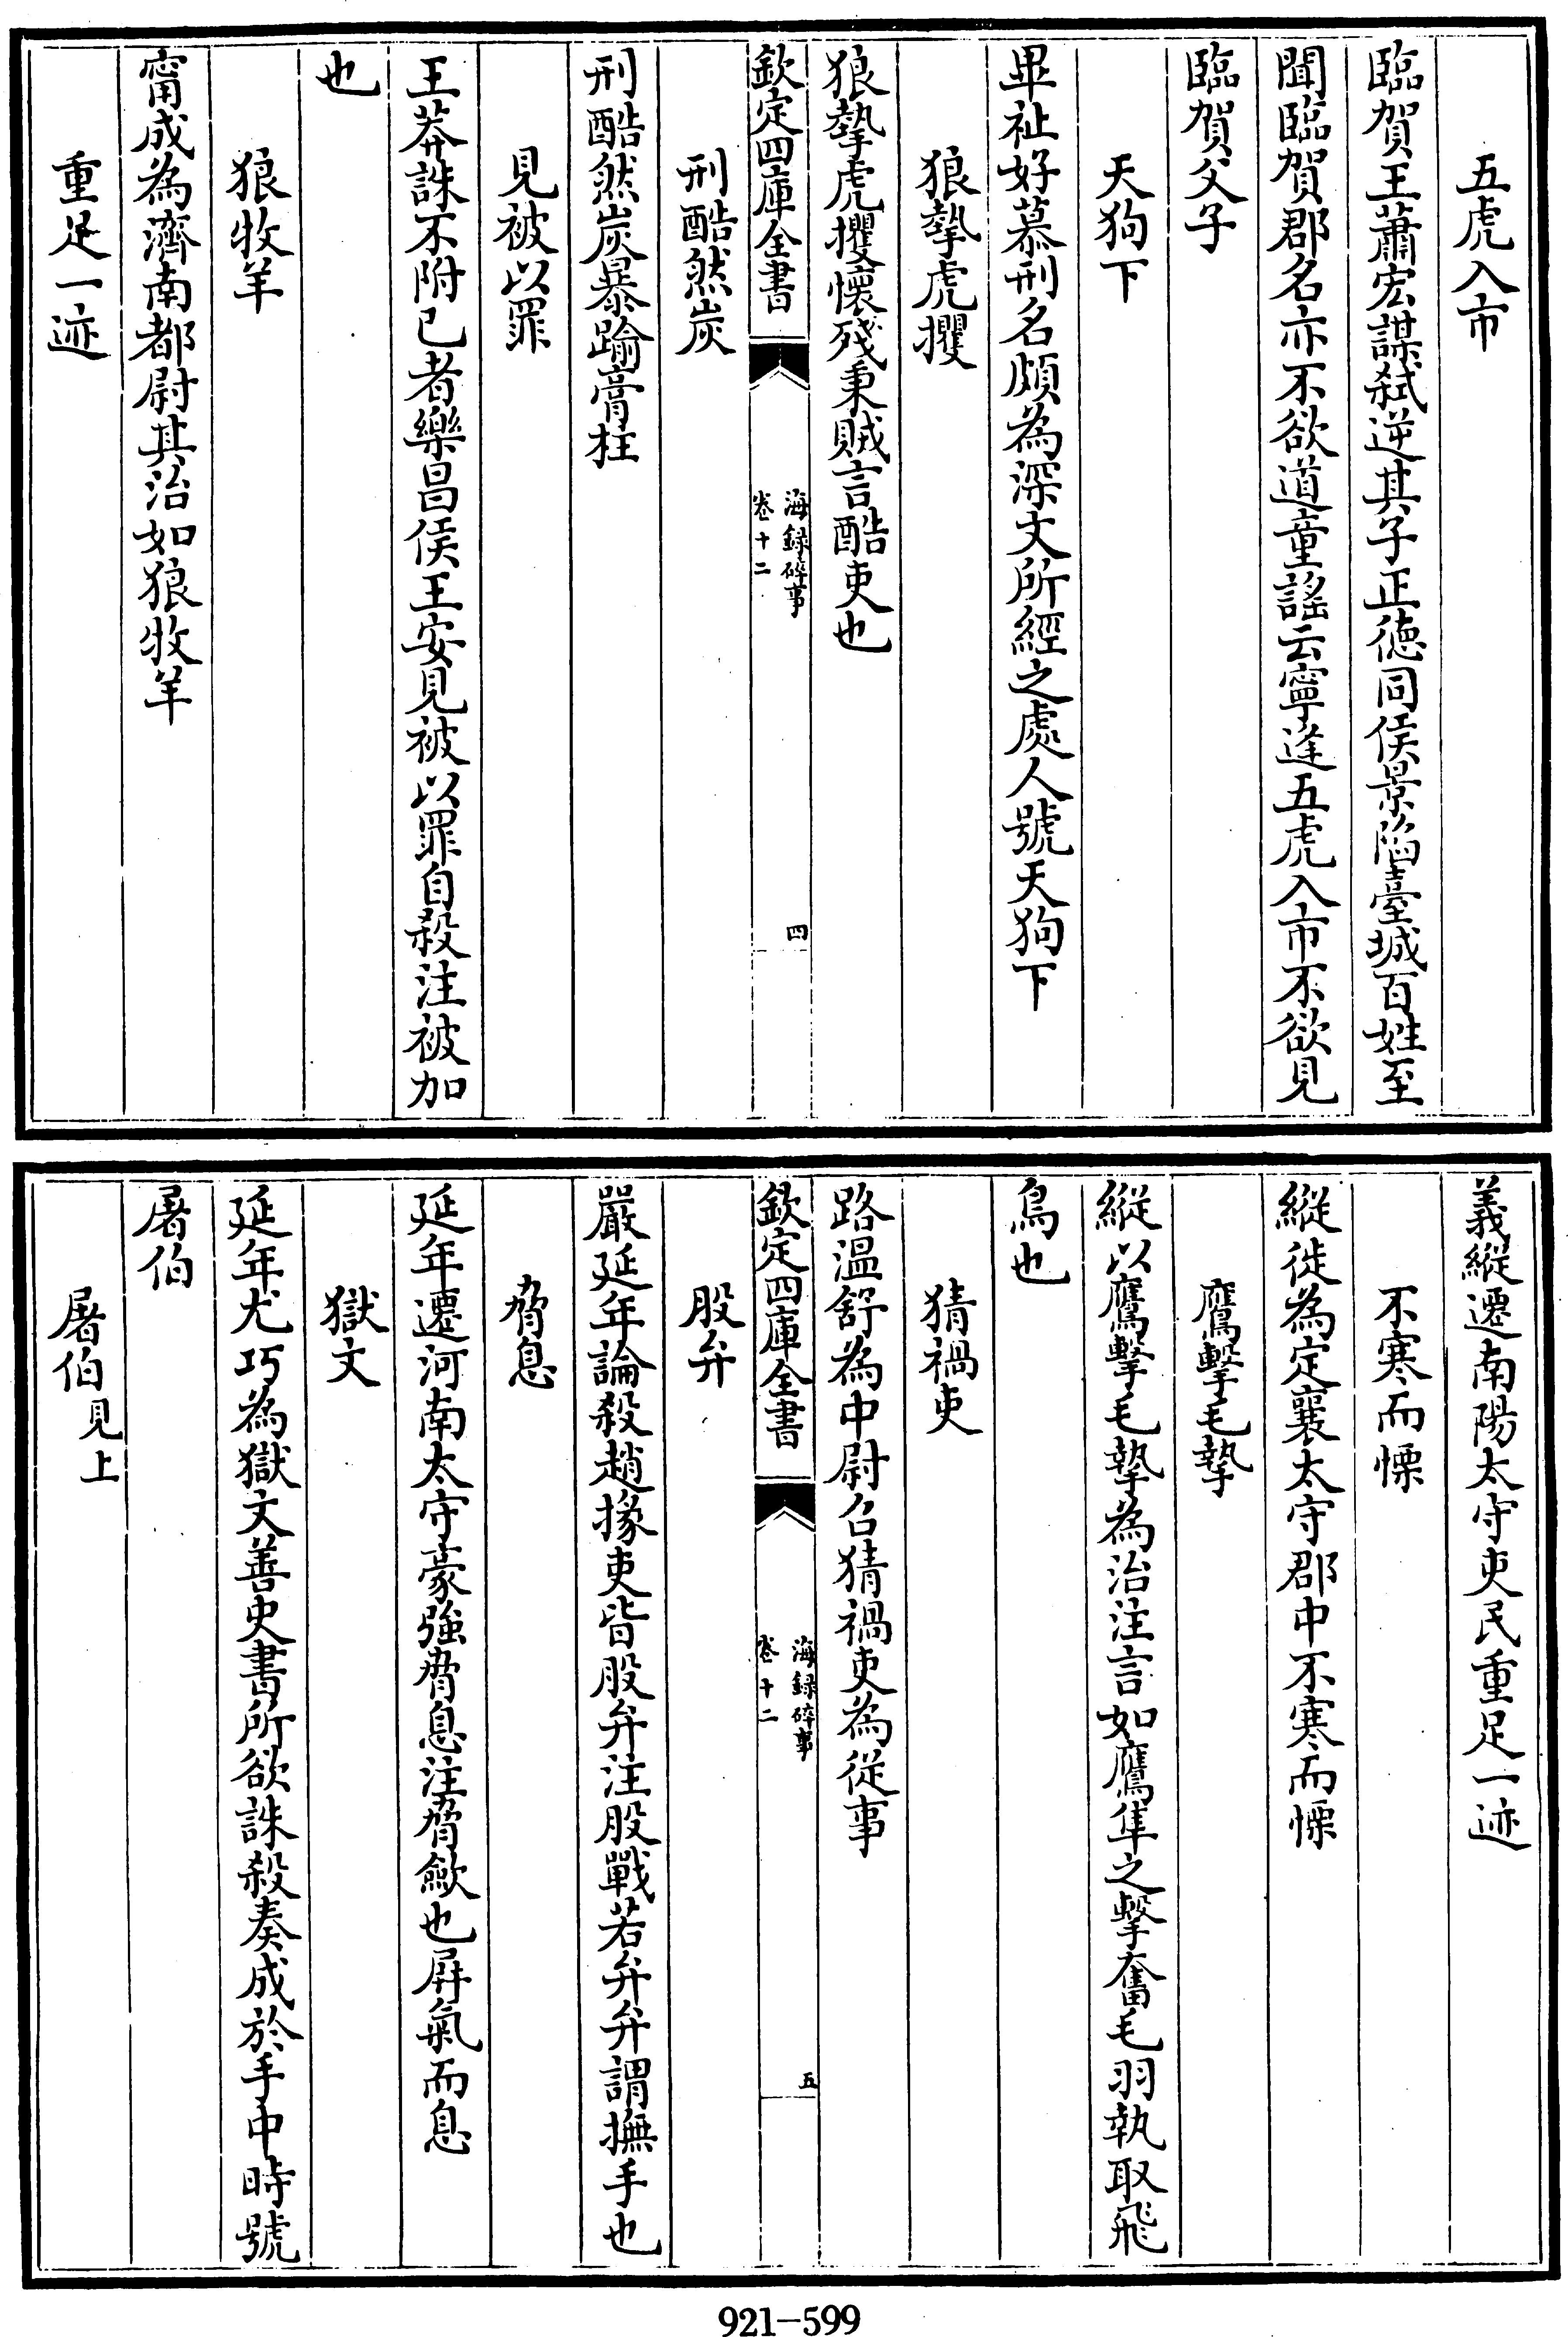 五虎入市
臨賀王蕭宏謀弑逆其子正德同侯景陷臺城百姓至
聞臨賀郡名亦不欲道童謠云寧逢五虎入市不欲見
臨賀父子
天狗下
畢祉好慕刑名頗為深文所經之處人號天狗下
狼摯虎攫
狼摯虎攫懷殘秉賊言酷吏也
欽定四庫全書
海録碎事
卷十二
四
刑酷然炭
刑酷然炭暴踰膏柱
見被以罪
王莽誅不附已者樂昌侯王安見被以罪自殺注被加
也
狼牧羊
甯成為濟南都尉其治如狼牧羊
重足一迹
義縱遷南陽太守吏民重足一迹
不寒而慄
縱徙為定襄太守郡中不寒而慄
鷹擊毛摯
縱以鷹擊毛摯為治注言如鷹隼之擊奮毛羽執取飛
鳥也
猜禍吏
路溫舒為中尉召猜禍吏為從事
欽定四庫全書
海録碎事
卷十二
五
股弁
嚴延年論殺趙掾吏皆股弁注股戰若弁弁謂撫手也
脅息
延年遷河南太守豪強脅息注脅歛也屏氣而息
獄文
延年尤巧為獄文善史書所欲誅殺奏成於手中時號
屠伯
屠伯見上
921-599